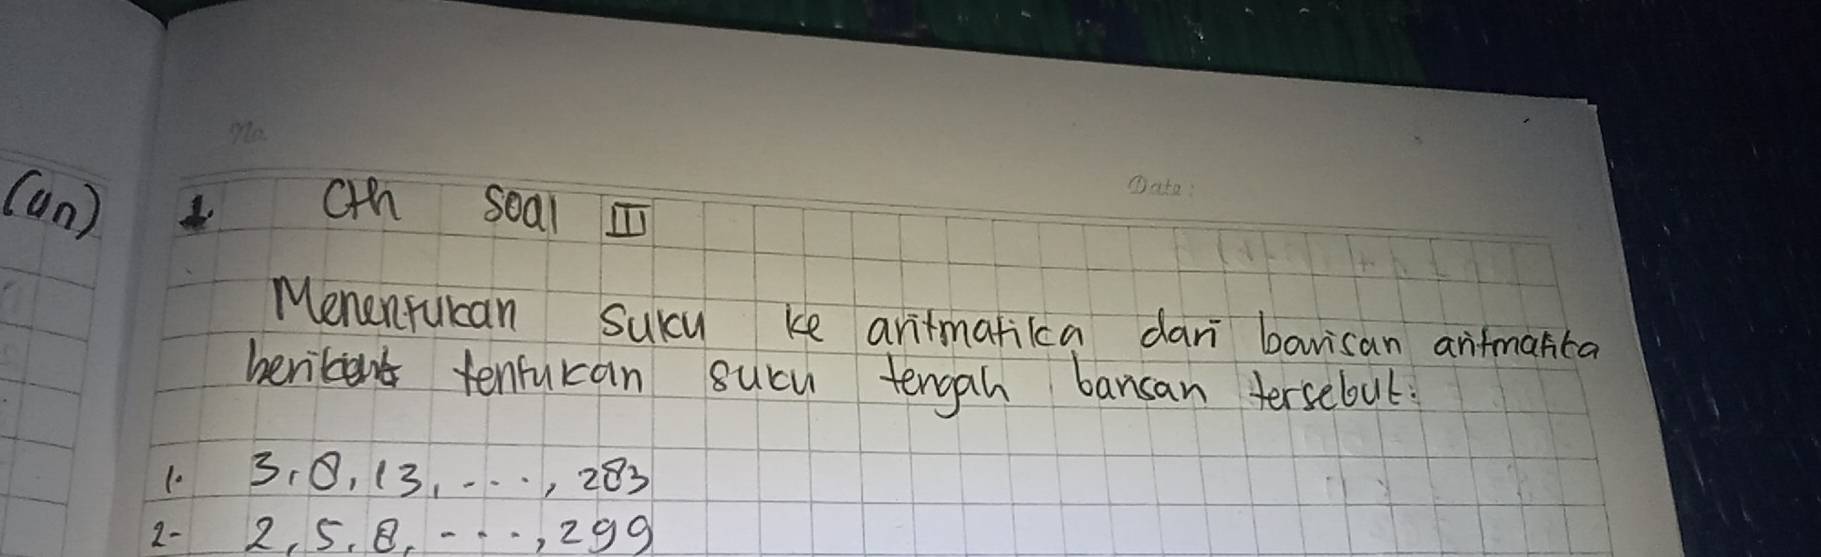 No.
Date:
(un)
1. Cth soal III
Menentukan suku ke aritmatika dari barisan aritmatika
berikut tentukan suku tengah barisan tersebut:
1. 3, 8, 13, ..., 283
2- 2, 5, 8, ..., 299